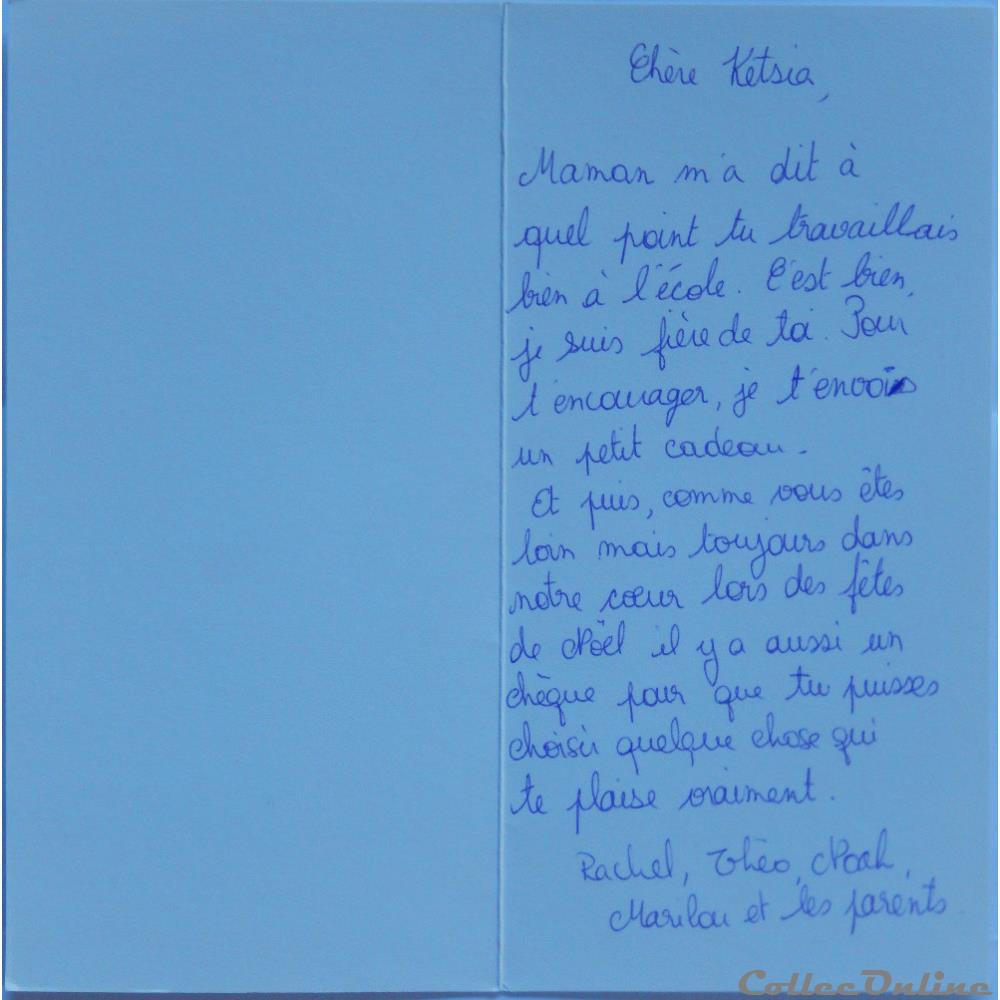 Chère Ketsia,
Maman m'a dit à
quel point tu travaillais
bien à l'école. C'est bien,
je suis fière de toi. Pour
t'encourager, je t'envois
un petit cadeau.
Et puis, comme vous êtes
loin mais toujours dans
notre cœur lors des fêtes
de Nöel il y a aussi un
chèque pour que tu puisses
choisir quelque chose qui
te plaise vraiment.
Rachel, Théo, Noah,
Marilou et les parents.
CollecOnline